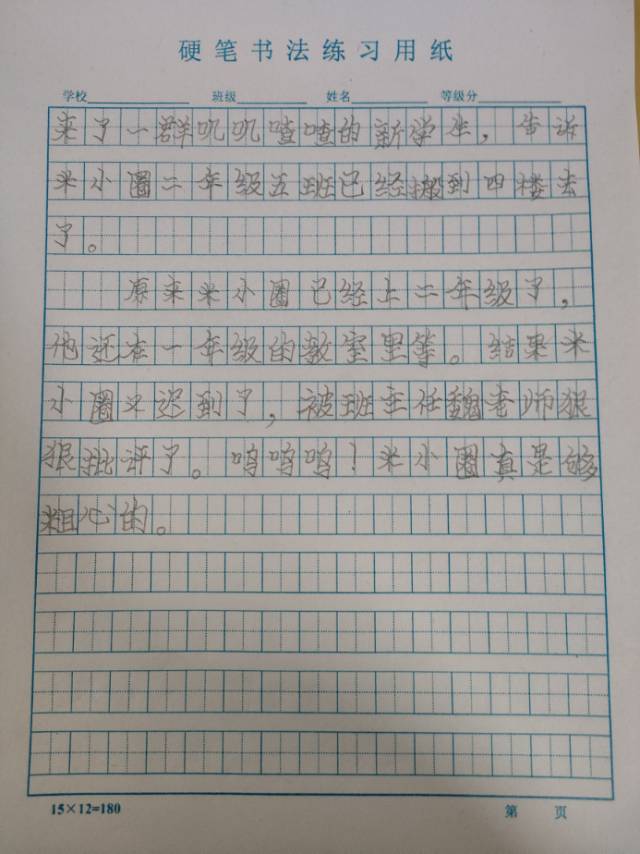 硬笔书法练习用纸
学校 班级 姓名 等级分
来了一群叽叽喳喳的新学生，告诉
米小圈二年级五班已经搬到四楼去
了。
原来米小圈已经上二年级了，
他还在一年级的教室里等。结果米
小圈又迟到了，被班主任魏老师狠
狠批评了。呜呜呜！米小圈真是够
粗心的。
15×12=180
第 页